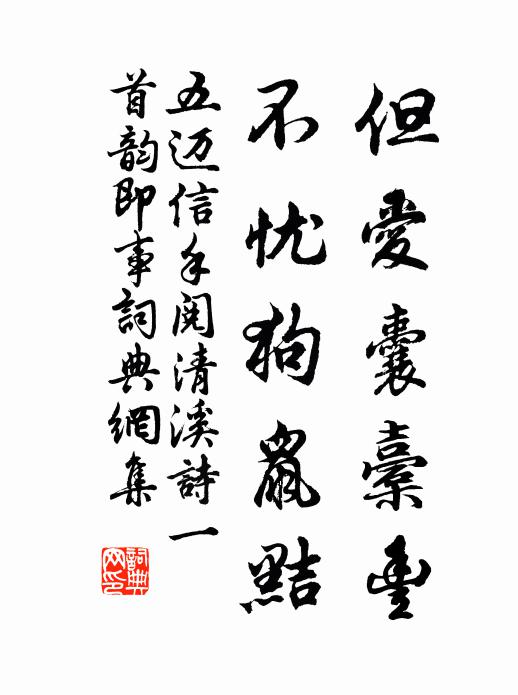 但愛囊橐豐
不忧狗鼠黠
五迈信手阅清溪詩一
首韵即事詞典網集
詞典网印